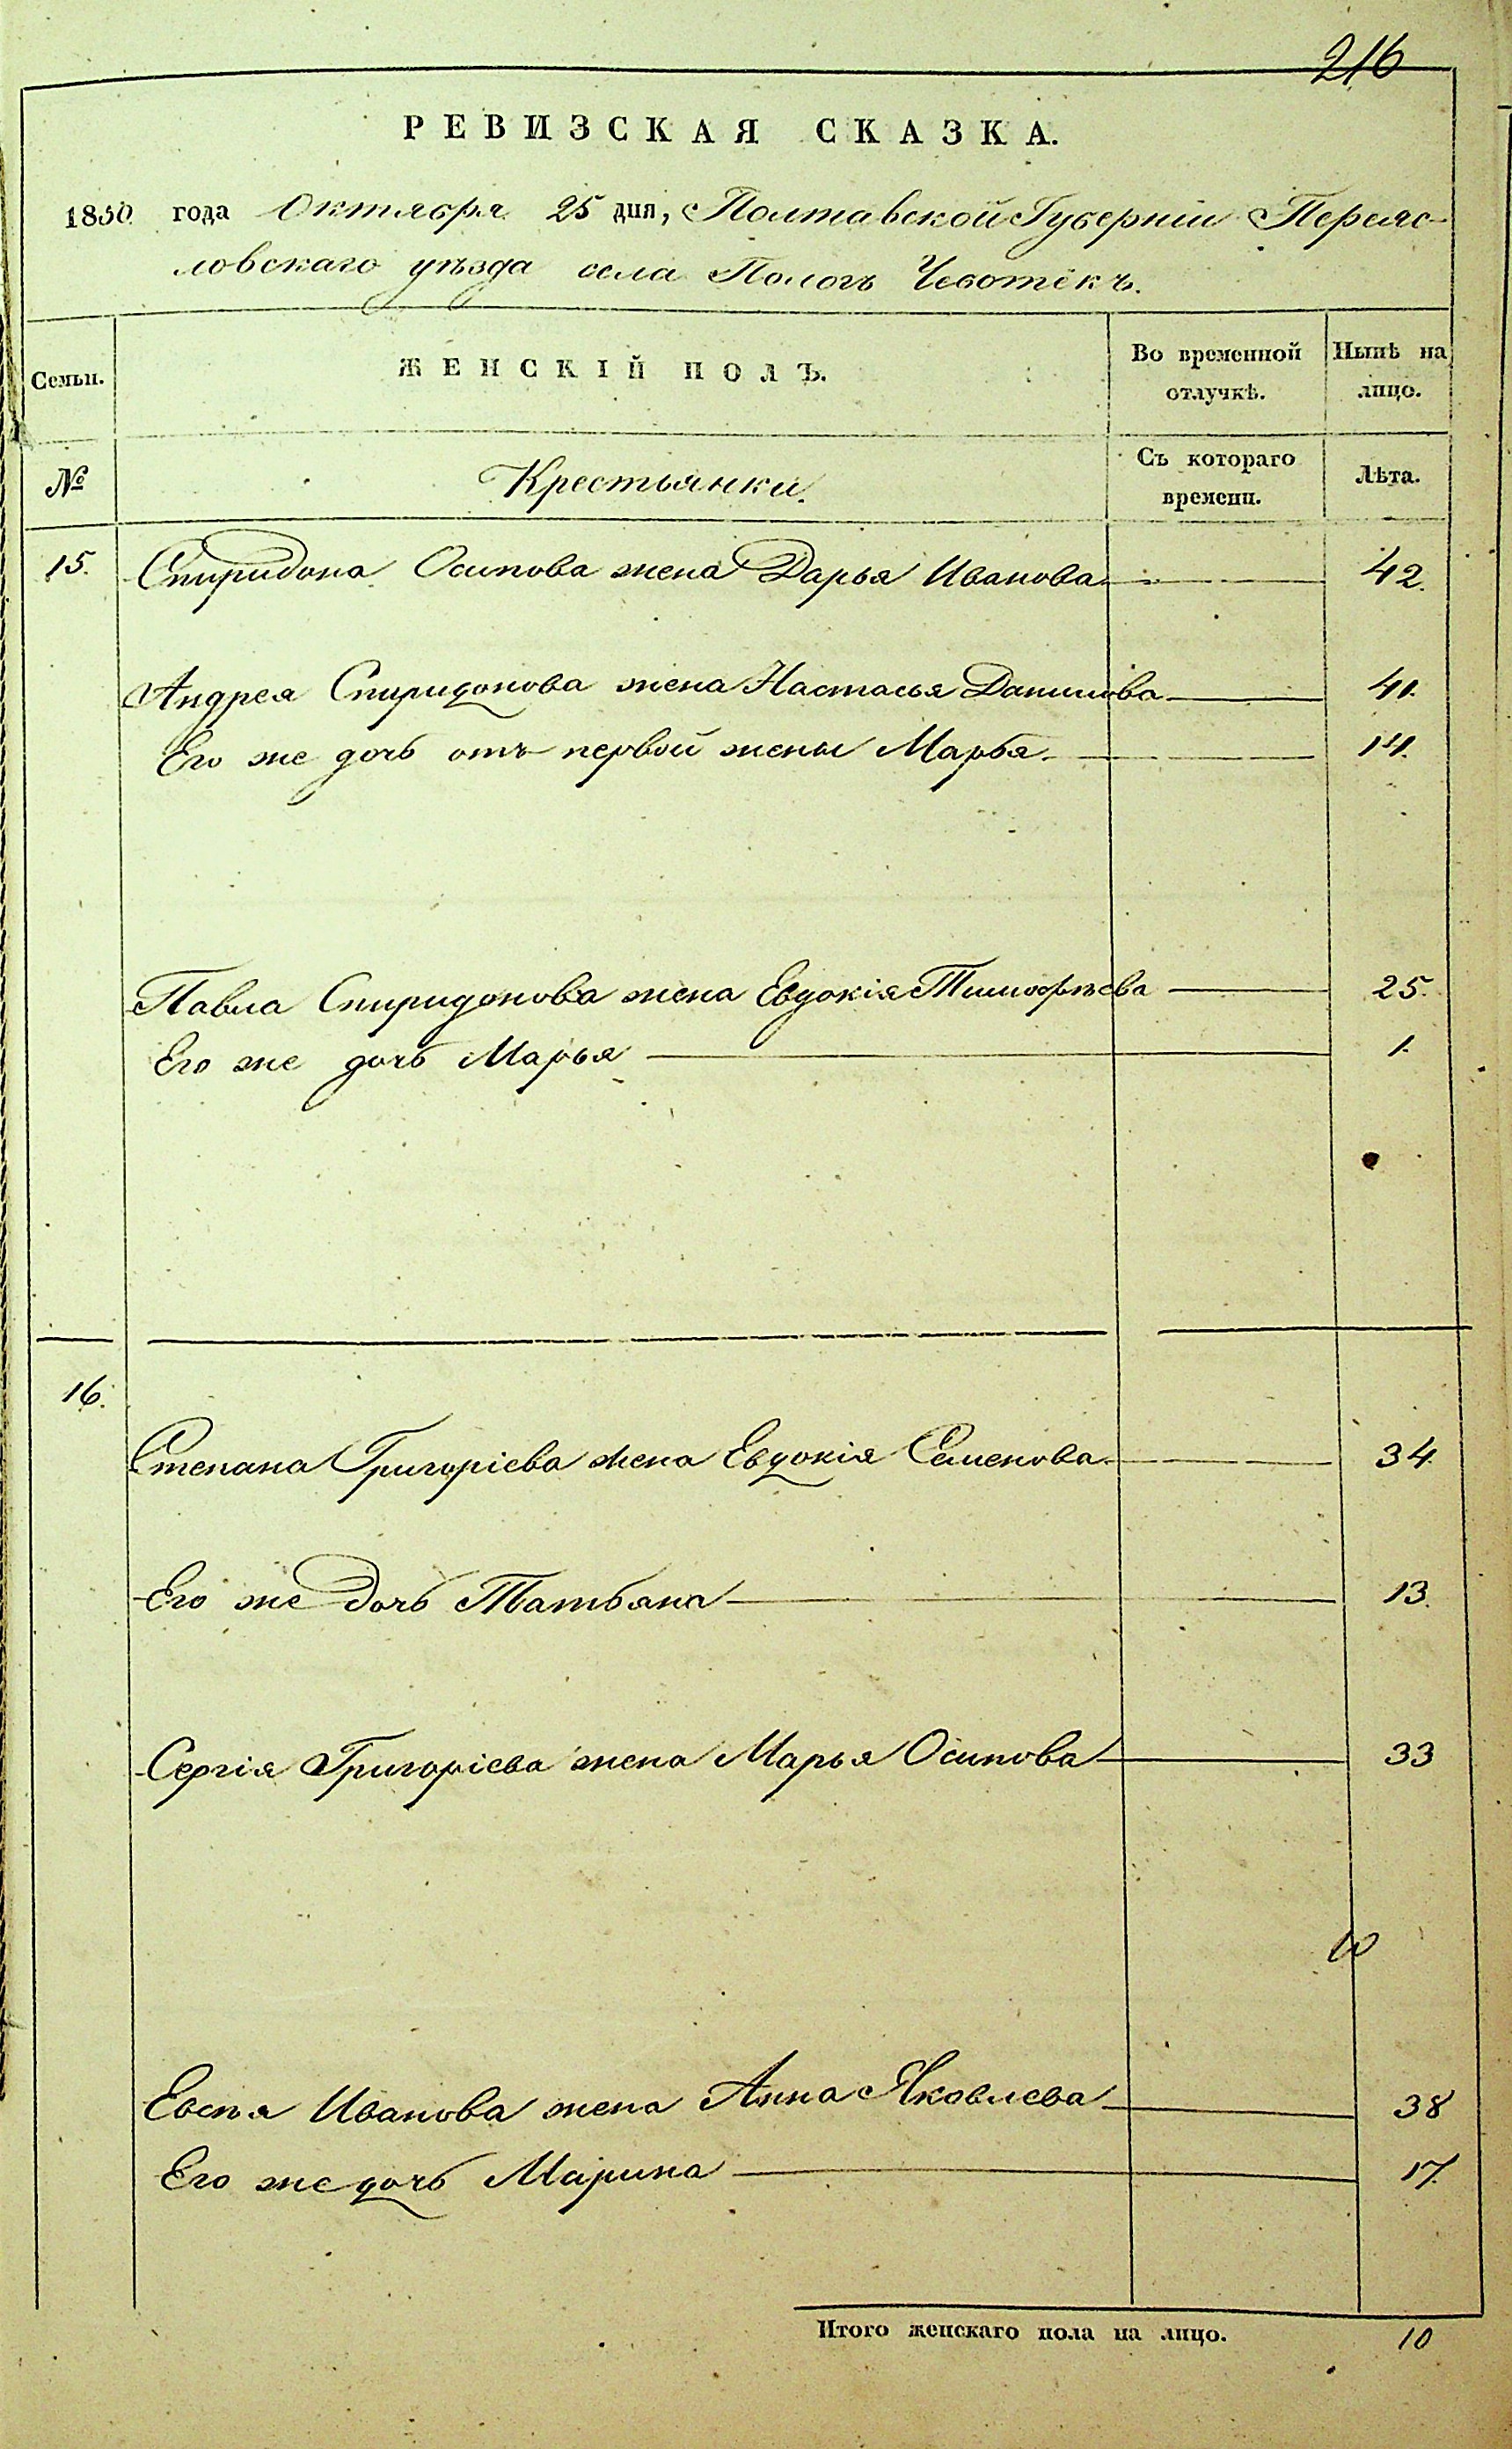 216
РЕВИЗСКАЯ СКАЗКА.
1850 года Октября 25 дня, Полтавской Губерніи Переяс-
ловскаго уѣзда села Пологъ Чеботёкъ.
Семьи.
ЖЕНСКІЙ ПОЛЪ.
Во временной отлучкѣ.
Нынѣ на лицо.
№
Крестьянки.
Съ котораго времени.
Лѣта.
15. Спиридона Осипова жена Дарья Иванова 42.
Андрея Спиридонова жена Настасья Данилова 41.
Его же дочь отъ первой жены Марья 14.
Павла Спиридонова жена Евдокія Тимофѣева 25.
Его же дочь Марья 1.
16.
Степана Григоріева жена Евдокія Семенова 34.
Его же дочь Татьяна 13.
Сергія Григоріева жена Марья Осипова 33
Евсѣя Иванова жена Анна Яковлева 38
Его же дочь Марина 17.
Итого женскаго пола на лицо. 10